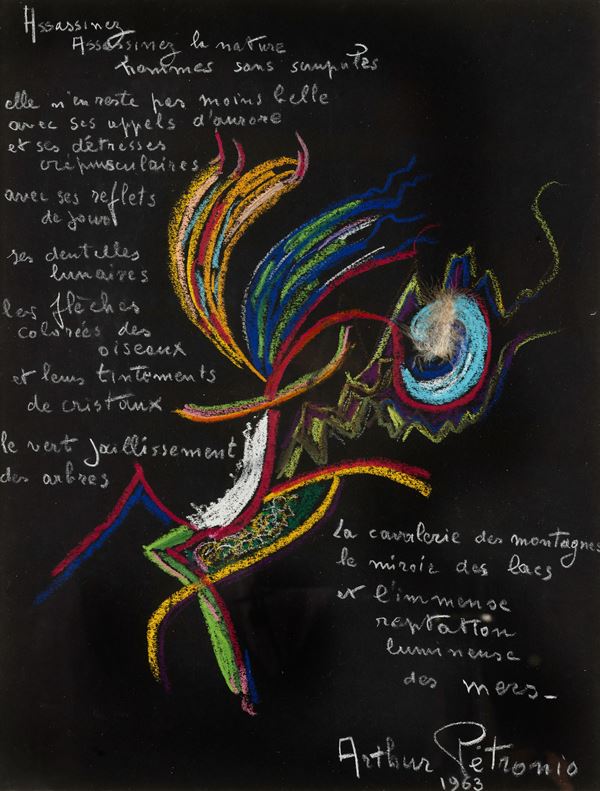 Assassinez
Assassinez la nature
hommes sans scrupules
elle n'en reste pas moins belle
avec ses appels d'aurore
et ses détresses
crépusculaires
avec ses reflets
de jour
ses dentelles
lunaires
les flèches
colorées des
oiseaux
et leurs tintements
de cristaux
le vert jaillissement
des arbres
La cavalerie des montagnes
le miroir des lacs
et l'immense
reptation
lumineuse
des mers_
Arthur Pétronio
1963